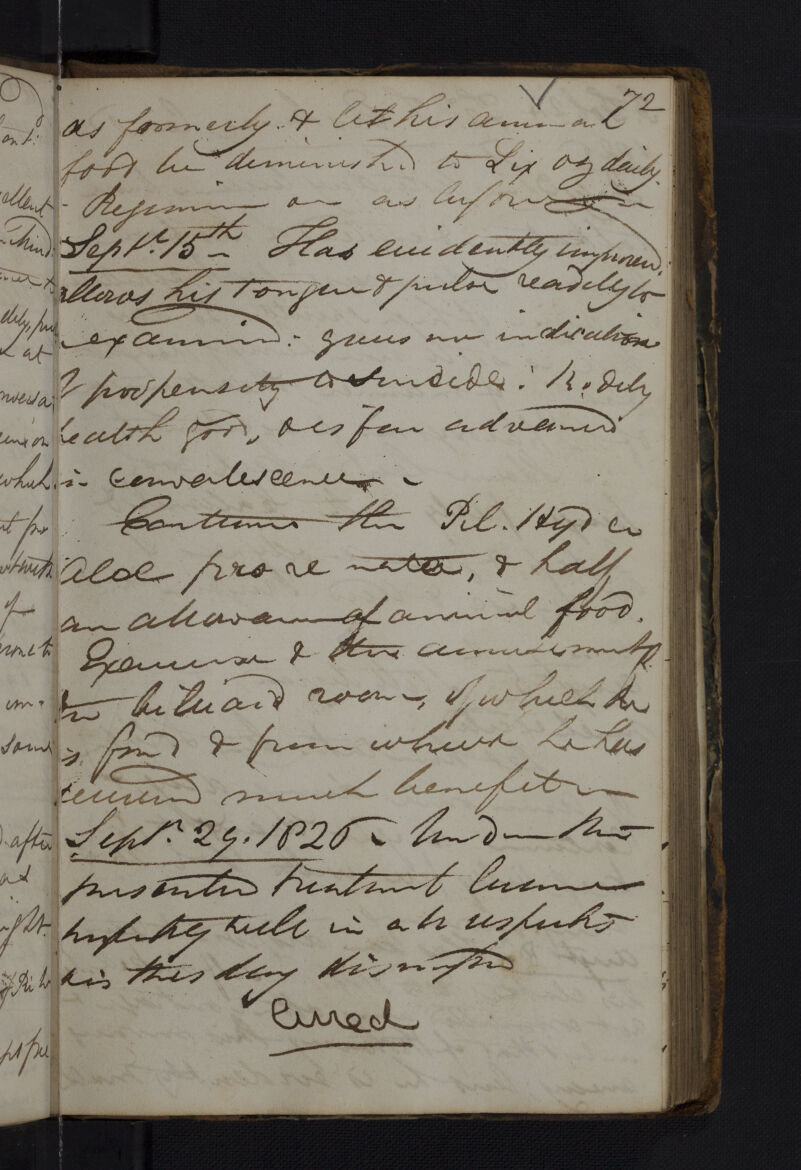 72
as formerly & let his animal
food be diminished to Six oz daily.
- Regimen as before
Septr. 15th - Has evidently improved.
allows his tongue & pulse readily to
examined: gives no indication
of propensity to suicide: Bodily
health good, & is far advanced
in convalescence -
Continue the Pil. Hyd cu
Aloe pro re nata, & half
an allowance of animal food.
Exercise & the amusements of
the billiard room, of which he
is fond & from whence he has
received much benefit -
Septr. 29. 1826 - Under the
treatment became
perfectly well in all respects
& is this day dismissed
Cured